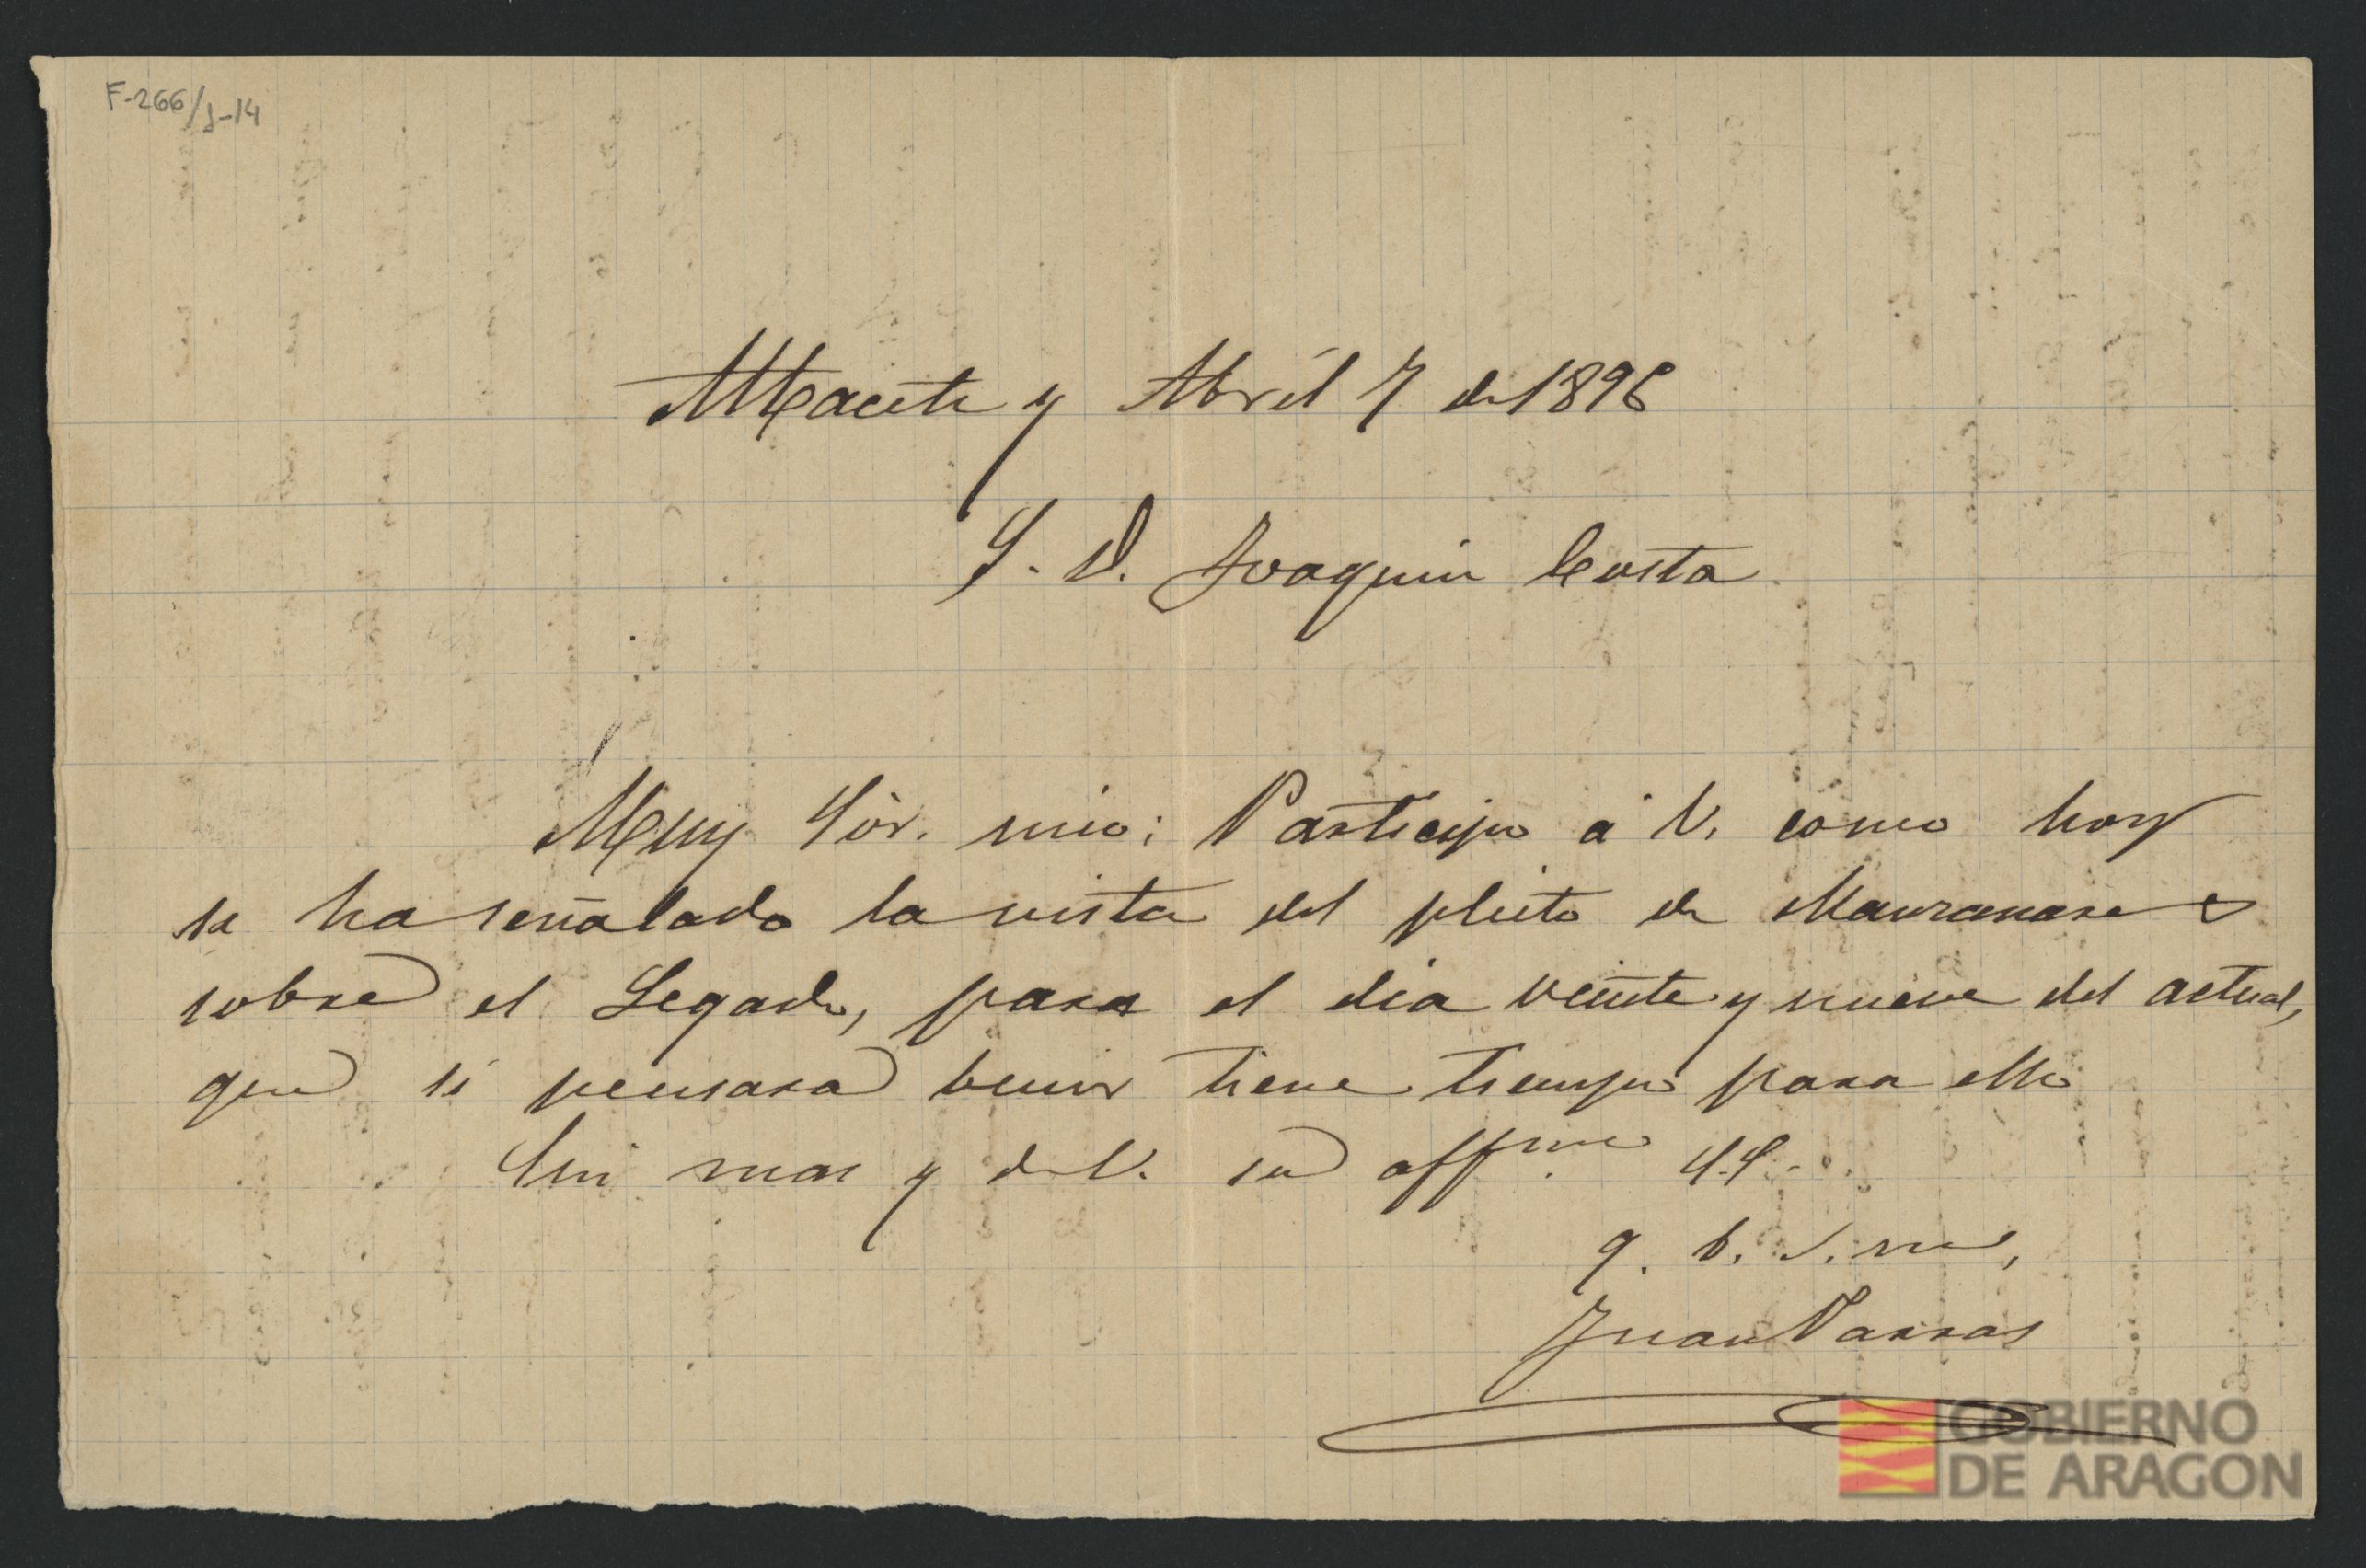 F-266/J-14
Albacete y Abril 7 de 1896
S. D. Joaquin Costa
Muy Sór. mio: Participo á V. como hoy
se ha señalado la vista del pleito de Manzanares
sobre el Legado, para el dia veinte y nueve del actual,
que si pensara benir tiene tiempo para ello
Sin mas y de V. su affmo S.S.
q. b. s. m,
Juan
GOBIERNO
DE ARAGON